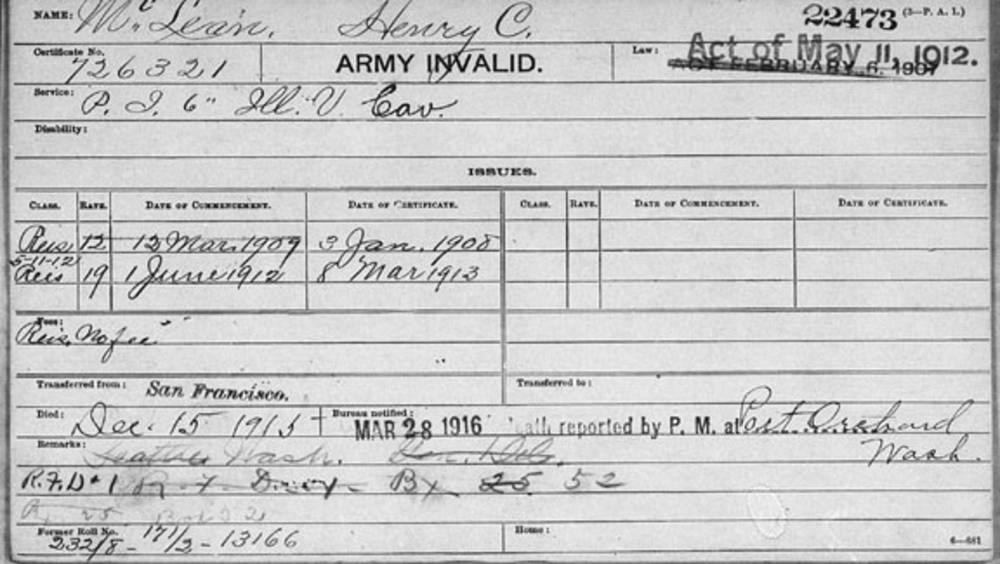 NAME: McLean, Henry C. 22473 (3—P. A. I.)
Certificate No. 726321 ARMY INVALID. Law: Act of May 11, 1912.
ACT FEBRUARY 6, 1907
Service: P. I. 6" Ill. V. Cav.
Disability:
ISSUES.
CLASS. RATE. DATE OF COMMENCEMENT. DATE OF CERTIFICATE. CLASS. RATE. DATE OF COMMENCEMENT. DATE OF CERTIFICATE.
Reis 12 12 Mar. 1907 3 Jan. 1908
5-11-12
Reis 19 1 June 1912 8 Mar 1913
Fees:
Reis, No fee
Transferred from: San Francisco. Transferred to:
Died: Dec. 15 1915 Bureau notified: MAR 28 1916 Death reported by P. M. at Port Orchard
Remarks: Seattle Wash. Wash.
R.F.D #1 Bx 25 52
Former Roll No. 232/8 - 17 1/2 - 13166 Home: 6—681